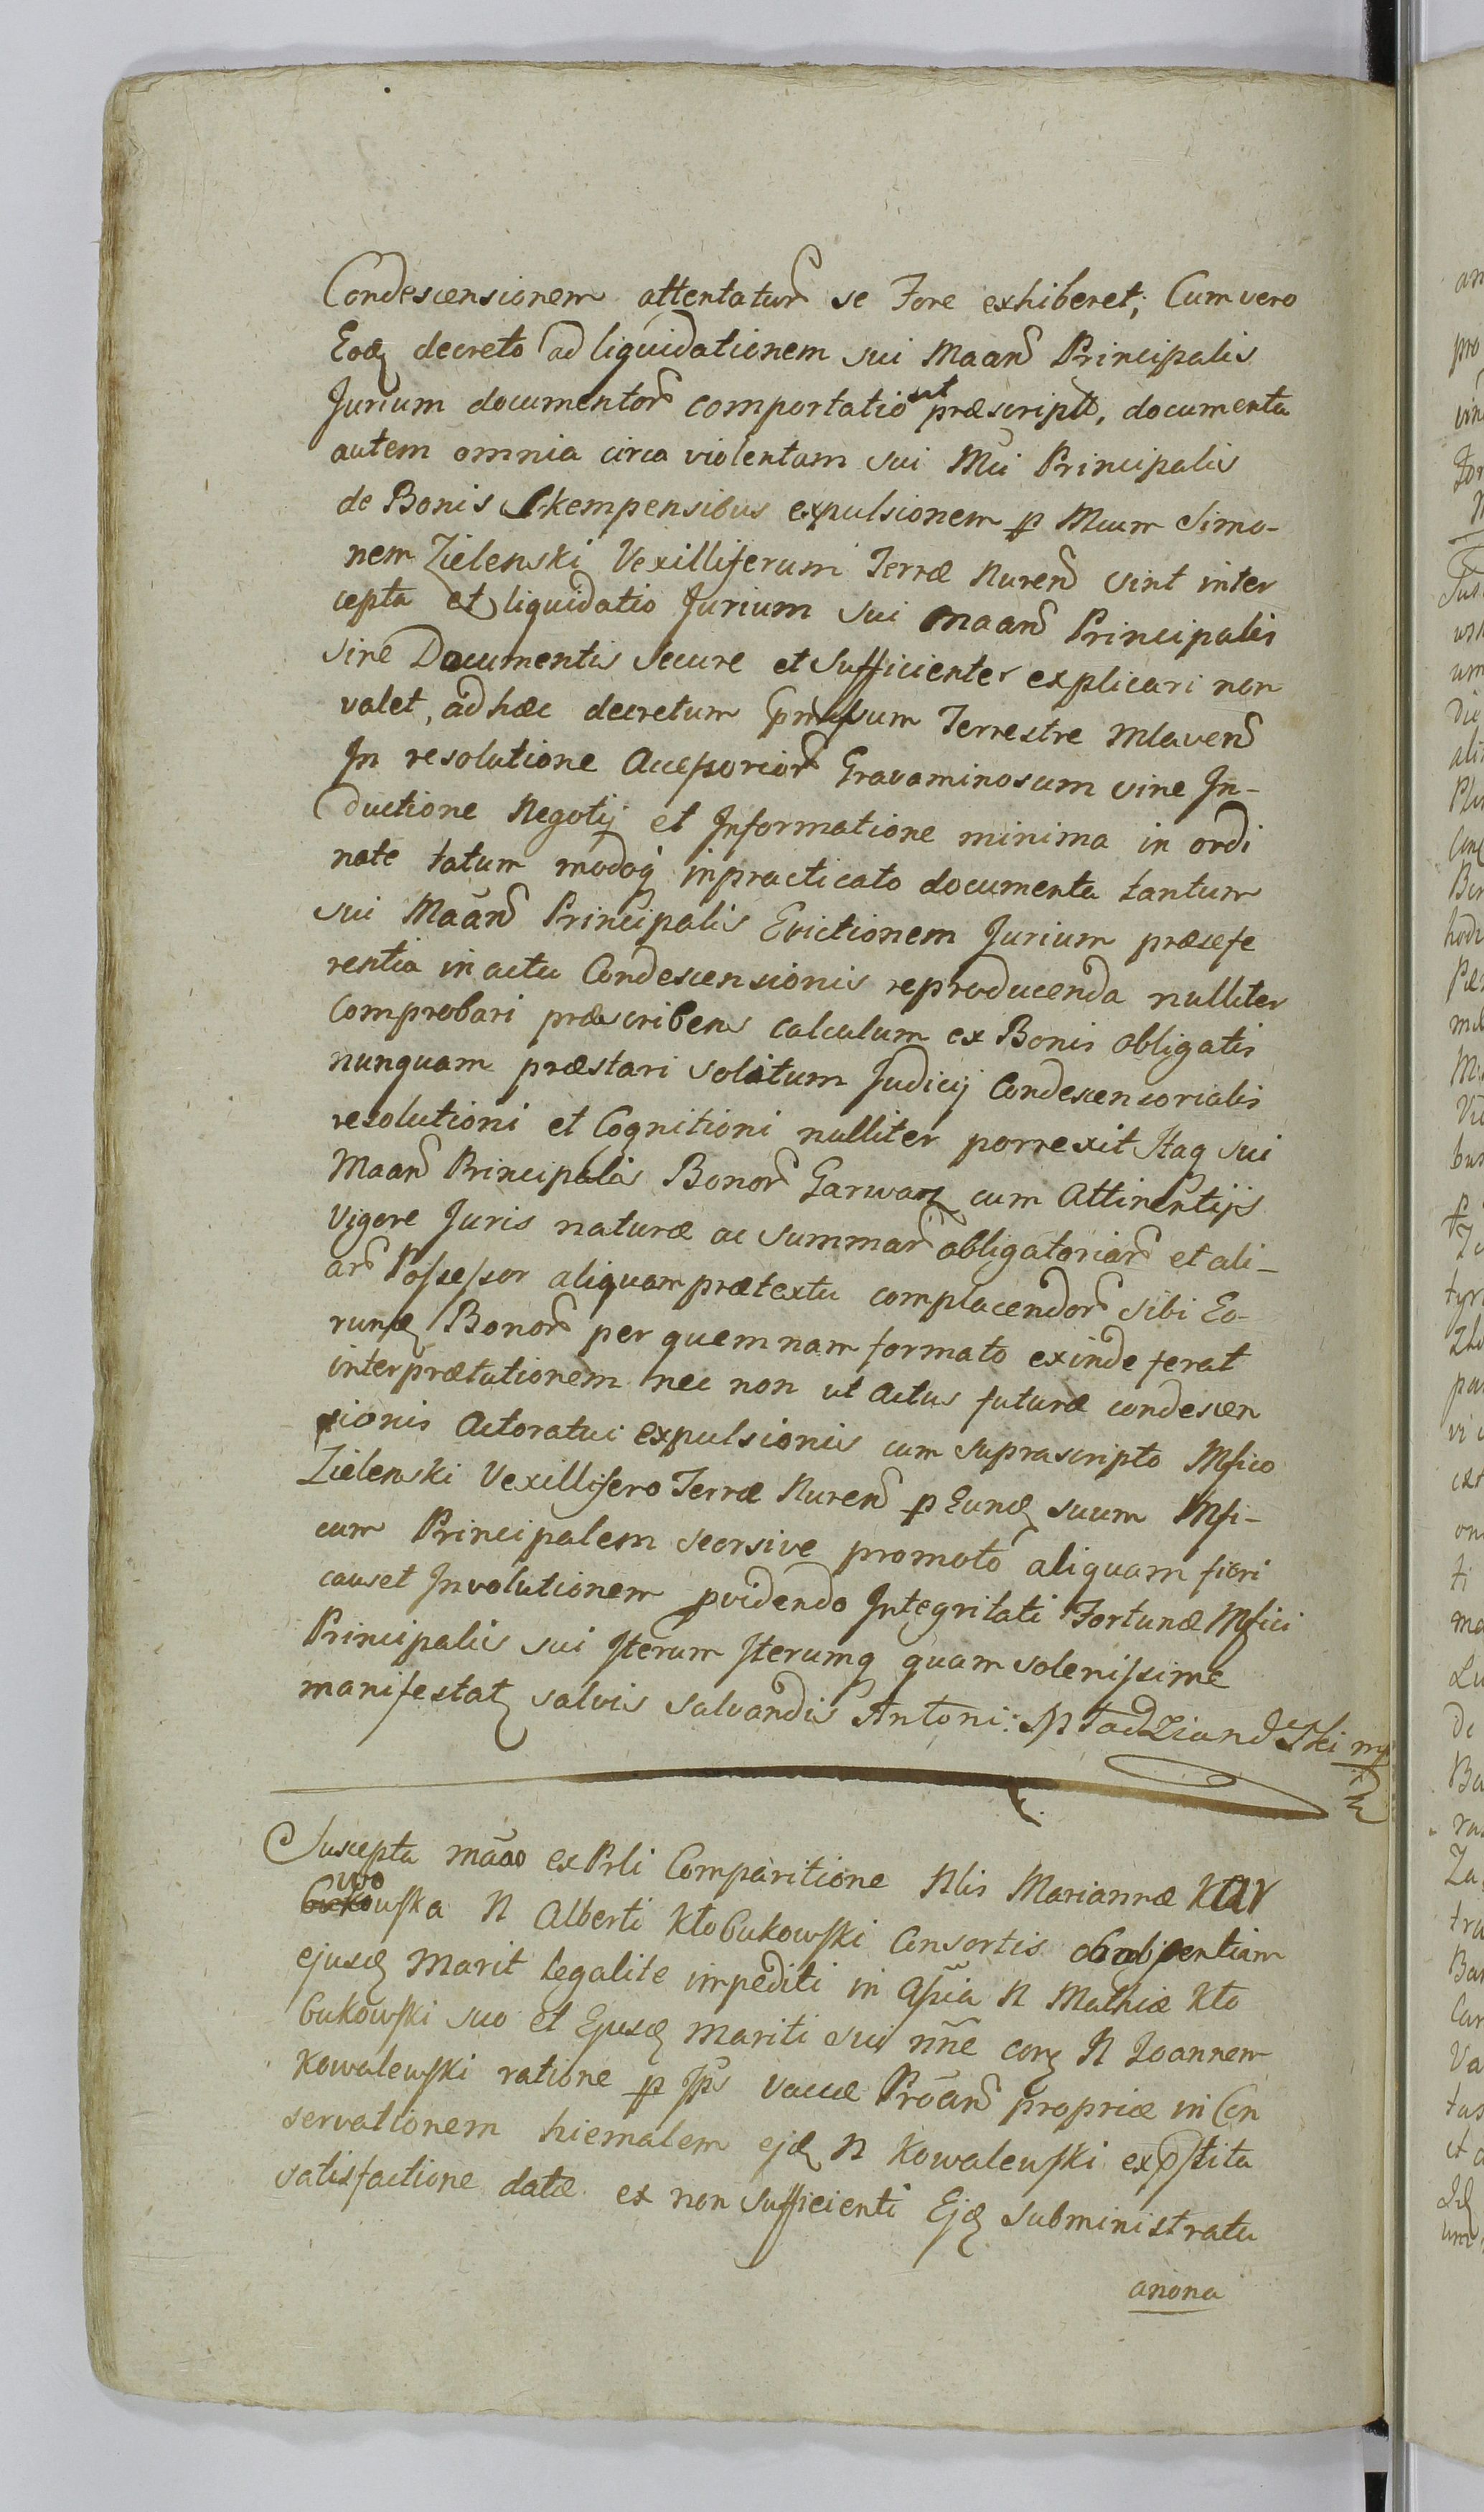 Condescensionem attentatur se Fore exhiberet; Cum vero
Eodem decreto ad liquidationem sui Maan Principalis
Jurium documentor comportatio sit præscript, documenta
autem omnia circa violentam sui Mci Principalis
de Bonis Skempensibus expulsionem p Mcum Simo-
nem Zielenski Vexilliferum Terræ Nuren sint inter
cepta et liquidatio Jurium sui Maan Principalis
sine Documentis secure et sufficienter explicari non
valet, ad hæc decretum Terrestre Mlaven
In resolutione Accessorior Gravaminosum sine In-
ductione Negotij et Informatione minima in ordi
nate tatum modoq inpracticato documenta tantum
sui Maan Principalis Evictionem Jurium præsefe
rentia in actu Condescensionis reproducenda nulliter
comprobari præscribens calculum ex Bonis obligatis
nunquam præstari solitum Judicij Condescensorialis
resolutioni et Cognitioni nulliter porrexit Itaq sui
Maan Principalis Bonor Garwarz cum Attinentijs
Vigore Juris naturæ ac summar obligatoriar et ali-
ar Possessor aliquam prætextu complacendor sibi Eo-
rund Bonor per quemnam formato exinde ferat
interprætationem nec non ut actus futuræ condescen
sionis Actoratui expulsionis cum suprascripto Mfico
Zielenski Vexillifero Terræ Nuren p Eund suum Mfi-
cum Principalem seorsive promoto aliquam fieri
causet Involutionem pvidendo Integritati Fortunæ Mfici
Principalis sui Iterum Iterumq quam solenissime
manifestat salvis salvandis Antoni:
Suscepta ex Prli Comparitione Nlis Mariannæ Kar
wowska N Alberti Kłobukowski Consortis ob absentiam
ejusd Marit legalite impediti in Asscia N Mathiæ Kło
bukowski suo et Ejusd mariti sui nne cong N Joannem
Kowalewski ratione p Ips vaccæ Proan propriæ in Con
servationem hiemalem ejd N Kowalewski expstita
satisfactione datæ ex non sufficienti Ejd subministratu
anona